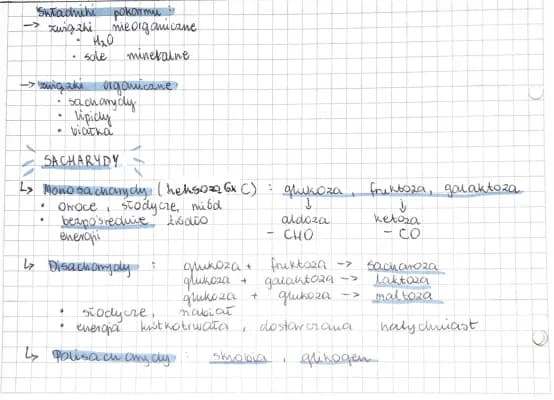 Składniki pokarmu:
→ związki nieorganiczne
• H₂O
• sole mineralne
→ związki organiczne
• sacharydy
• lipidy
• białka
SACHARYDY
↳ Monosacharydy (heksoza 6x C) : glukoza, fruktoza, galaktoza
• owoce, słodycze, miód ↓ ↓
• bezpośrednie źródło aldoza ketoza
energii - CHO - CO
↳ Disacharydy : glukoza + fruktoza → sacharoza
glukoza + galaktoza → laktoza
glukoza + glukoza → maltoza
• słodycze, nabiał
• energia krótkotrwała, dostarczana natychmiast
↳ Polisacharydy : skrobia, glikogen